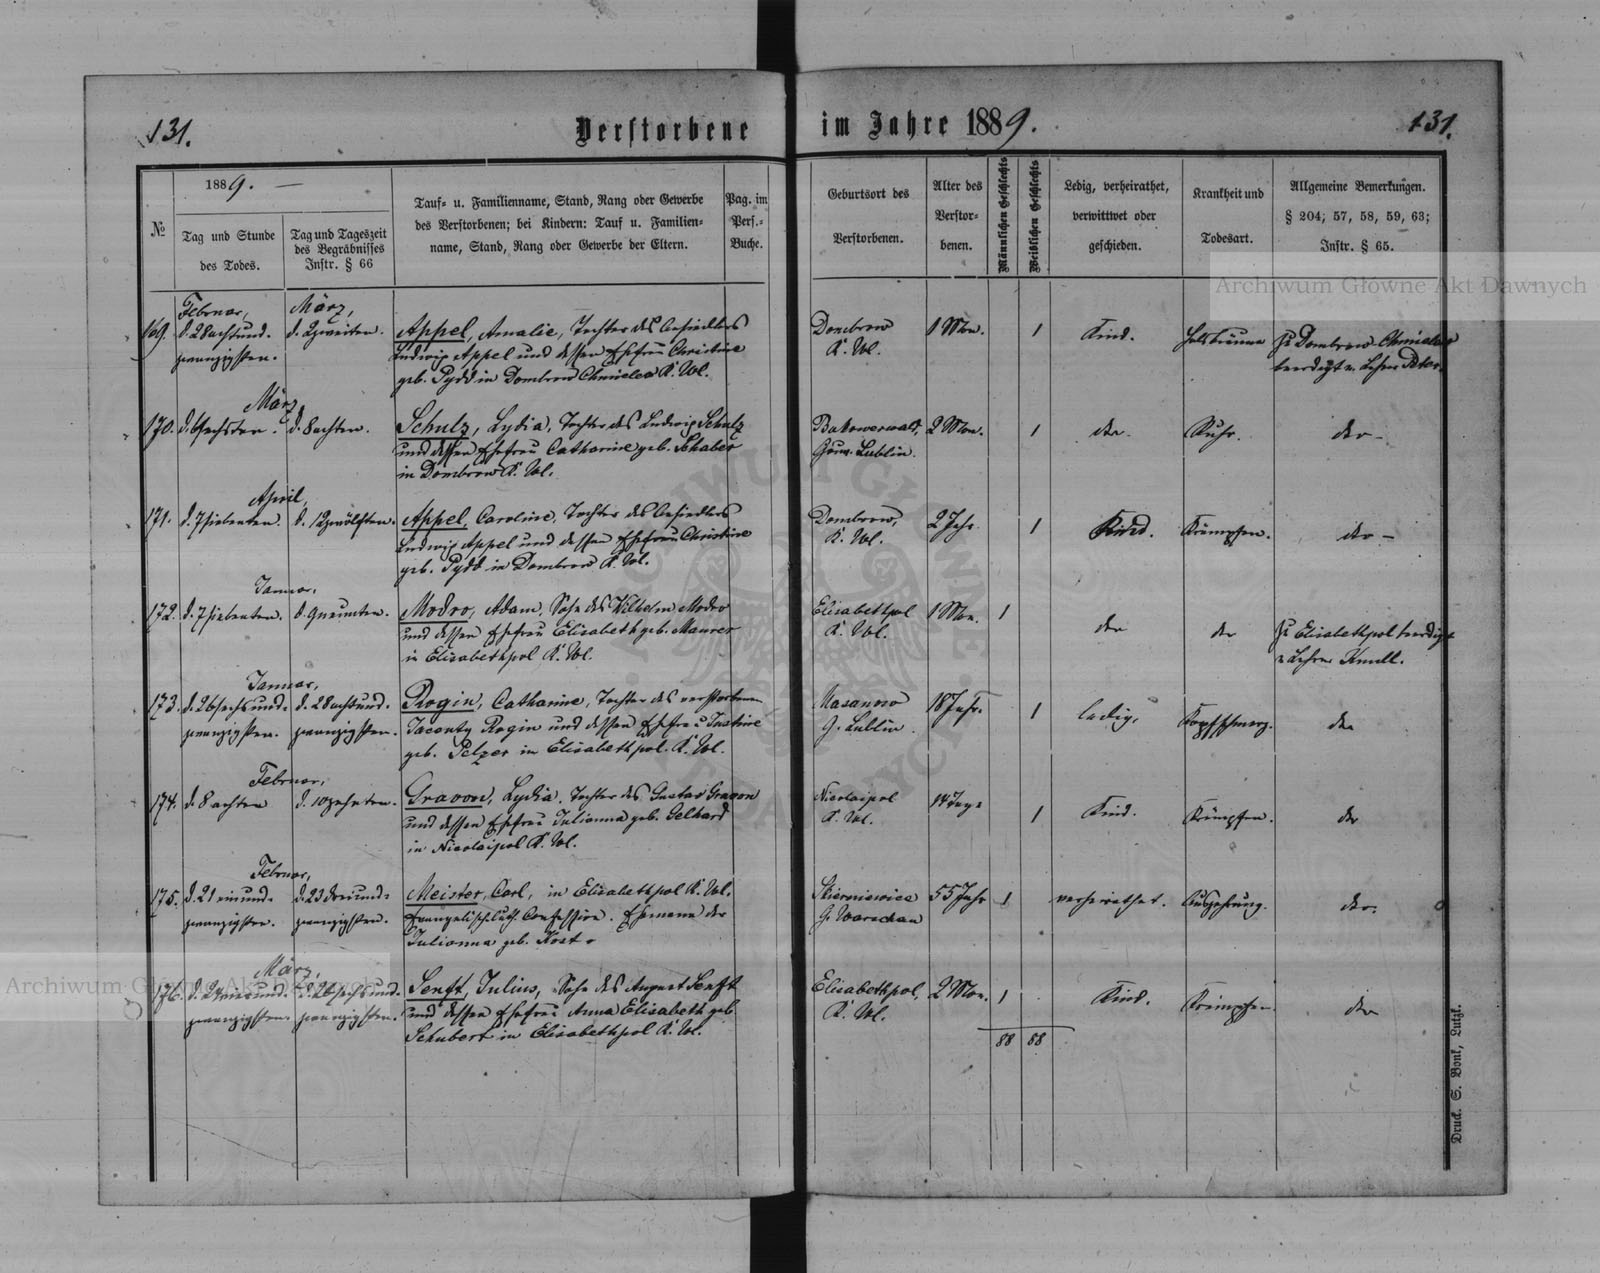 131.
Verstorbene
im Jahre 1889.
131.
№
1889. —
Tag und Stunde
des Todes.
Tag und Tageszeit
des Begräbnisses
Instr. § 66
Tauf- u. Familienname, Stand, Rang oder Gewerbe
des Verstorbenen; bei Kindern: Tauf u. Familien-
name, Stand, Rang oder Gewerbe der Eltern.
Pag. im
Pers.-
Buche.
Geburtsort des
Verstorbenen.
Alter des
Verstor-
benen.
Männlichen Geschlechts
Weiblichen Geschlechts
Ledig, verheirathet,
verwittwet oder
geschieden.
Krankheit und
Todesart.
Allgemeine Bemerkungen.
§ 204; 57, 58, 59, 63;
Instr. § 65.
Archiwum Główne Akt Dawnych
169.
Februar,
d. 28 achtund-
zwanzigsten.
März,
d. 2 zweiten.
Appel, Amalie, Tochter des Ansiedlers
Ludwig Appel und dessen Ehefrau Christine
geb. Pydd in Dombrow K. Wol.
Dombrow
K. Wol.
1 Mon.
1
Kind.
Halsbräune
zu Dombrow
beerdigt v. Lehrer
170.
März,
d. 6 sechsten.
d. 8 achten.
Schulz, Lydia, Tochter des Ludwig Schulz
und dessen Ehefrau Catharine geb. Schaber
in Dombrow K. Wol.
Gouv. Lublin.
2 Mon.
1
dto.
Ruhr.
dto –
171.
April,
d. 7 siebenten.
d. 12 zwölften.
Appel, Caroline, Tochter des Ansiedlers
Ludwig Appel und dessen Ehefrau Christine
geb. Pydd in Dombrow K. Wol.
Dombrow,
K. Wol.
2 Jahr
1
Kind.
Krämpfen.
dto –
172.
Januar,
d. 7 siebenten.
d. 9 neunten.
Modro, Adam, Sohn des Wilhelm Modro
und dessen Ehefrau Elisabeth geb. Maurer
in Elisabethpol K. Wol.
Elisabethpol
K. Wol.
1 Mon.
1
dto
dto
zu Elisabethpol beerdigt
v. Lehrer Knull.
173.
Januar,
d. 26 sechsund-
zwanzigsten.
d. 28 achtund-
zwanzigsten.
Rogin, Catharine, Tochter des verstorbenen
Rogin und dessen Ehefrau Justine
geb. Pelzer in Elisabethpol. K. Wol.
G. Lublin.
18 Jahr.
1
ledig.
Kopfschmerz.
dto
174.
Februar,
d. 8 achten
d. 10 zehnten.
Gravon, Lydia, Tochter des Gustav Gravon
und dessen Ehefrau Julianna geb. Gelhard
in Nicolaipol K. Wol.
Nicolaipol
K. Wol.
14 Tage
1
Kind.
Krämpfen.
dto
175.
Februar,
d. 21 einund-
zwanzigsten.
d. 23 dreiund-
zwanzigsten.
Meister, Carl, in Elisabethpol K. Wol.
Evangelisch luth. Confession. Ehemann der
Julianna geb. Kost.
Skierniewice
G. Warschau
55 Jahr
1
verheirathet.
Auszehrung.
dto.
176.
März,
d. 24 vierund-
zwanzigsten.
d. 26 sechsund-
zwanzigsten.
Senft, Julius, Sohn des August Senft
und dessen Ehefrau Anna Elisabeth geb
Schubert in Elisabethpol K. Wol.
Elisabethpol,
K. Wol.
2 Mon.
1
Kind.
Krämpfen.
dto
88 88
Archiwum Główne Akt Dawnych
Druck. S. Bonk, Lutzk.